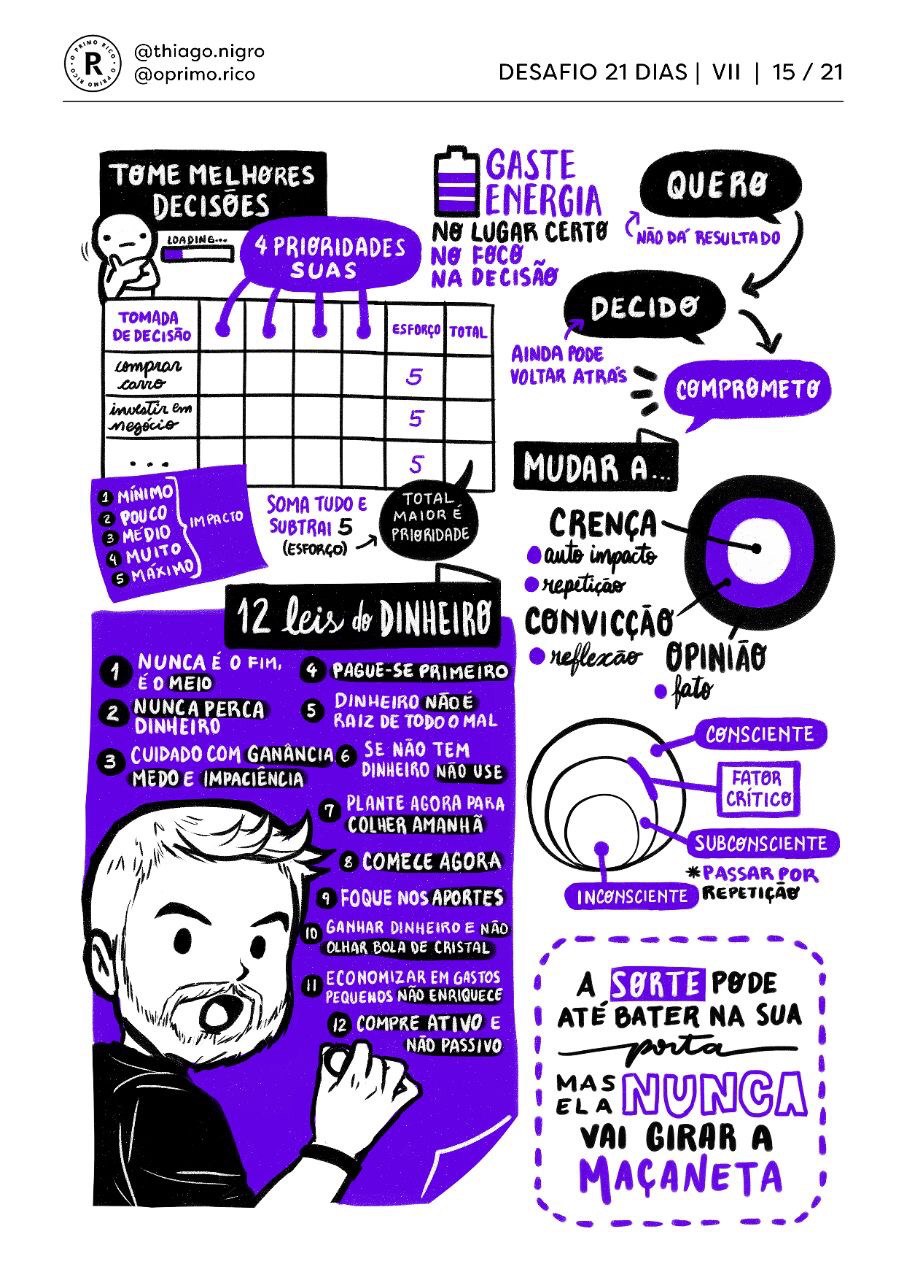 O PRIMO RICO • O PRIMO RICO •
R
@thiago.nigro
@oprimo.rico
DESAFIO 21 DIAS | VII | 15 / 21
TOME MELHORES
DECISÕES
LOADING...
4 PRIORIDADES
SUAS
TOMADA
DE DECISÃO
ESFORÇO
TOTAL
comprar
carro
5
investir em
negócio
5
...
5
1 MÍNIMO
2 POUCO
3 MÉDIO
4 MUITO
5 MÁXIMO
IMPACTO
SOMA TUDO E
SUBTRAI 5
(ESFORÇO)
TOTAL
MAIOR É
PRIORIDADE
GASTE
ENERGIA
NO LUGAR CERTO
NO FOCO
NA DECISÃO
QUERO
NÃO DÁ RESULTADO
DECIDO
AINDA PODE
VOLTAR ATRÁS
COMPROMETO
MUDAR A...
CRENÇA
auto impacto
repetição
CONVICÇÃO
reflexão
OPINIÃO
fato
12 leis do DINHEIRO
1 NUNCA É O FIM,
É O MEIO
2 NUNCA PERCA
DINHEIRO
3 CUIDADO COM GANÂNCIA
MEDO E IMPACIÊNCIA
4 PAGUE-SE PRIMEIRO
5 DINHEIRO NÃO É
RAIZ DE TODO O MAL
6 SE NÃO TEM
DINHEIRO NÃO USE
7 PLANTE AGORA PARA
COLHER AMANHÃ
8 COMECE AGORA
9 FOQUE NOS APORTES
10 GANHAR DINHEIRO E NÃO
OLHAR BOLA DE CRISTAL
11 ECONOMIZAR EM GASTOS
PEQUENOS NÃO ENRIQUECE
12 COMPRE ATIVO E
NÃO PASSIVO
CONSCIENTE
FATOR
CRÍTICO
SUBCONSCIENTE
*PASSAR POR
REPETIÇÃO
INCONSCIENTE
A SORTE PODE
ATÉ BATER NA SUA
porta
MAS
ELA NUNCA
VAI GIRAR A
MAÇANETA